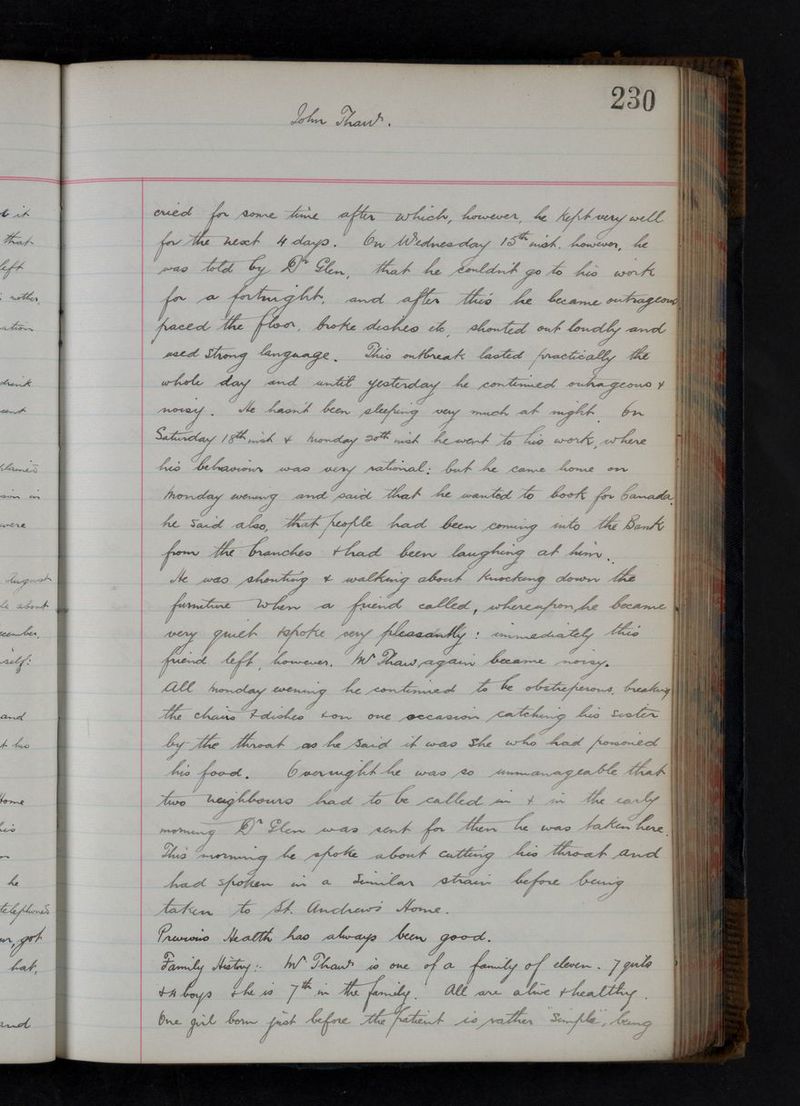 230
John Thaw.
cried for some time after which, however, he kept very well
for the next 4 days. On Wednesday 15th inst. however, he
was told by Dr Glen, that he couldn't go to his work
for a fortnight, and after this he became outrageous
paced the floor, broke dishes etc, shouted out loudly and
used strong language. This outbreak lasted practically the
whole day and until yesterday he continued outrageous &
noisy. He hasn't been sleeping very much at night. On
Saturday 18th inst & Monday 20th inst he went to his work, where
his behaviour was very rational: but he came home on
Monday evening and said that he wanted to book for Canada.
he said also, that people had been coming into the Bank
from the branches & had been laughing at him.
He was shouting & walking about knocking down the
furniture when a friend called, whereupon he became
very quiet & spoke very pleasantly: immediately this
friend left, however, Mr Thaw again became noisy.
All Monday evening he continued to be obstreperous, breaking
the chairs & dishes & on one occasion catching his sister
by the throat as he said it was she who had poisoned
his food. Overnight he was so unmanageable that
two neighbours had to be called in & in the early
morning Dr Glen was sent for then he was taken here.
This morning he spoke about cutting his throat and
had spoken in a similar strain before being
taken to St. Andrew's Home.
Previous Health has always been good.
Family History:- Mr Thaw is one of a family of eleven. 7 girls
& 4 boys & he is 7th in the family. All are alive & healthy.
One girl born just before the patient is rather "simple", being